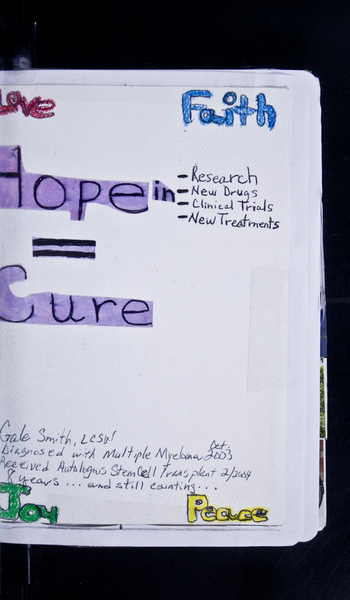 Love Faith
Hope in
- Research
- New Drugs
- Clinical Trials
- New Treatments
=
Cure
Gale Smith, LCSW
Diagnosed with Multiple Myeloma Oct. 2003
Received Autologous Stem Cell Transplant 2/2004
8 years ... and still counting...
Joy Peace